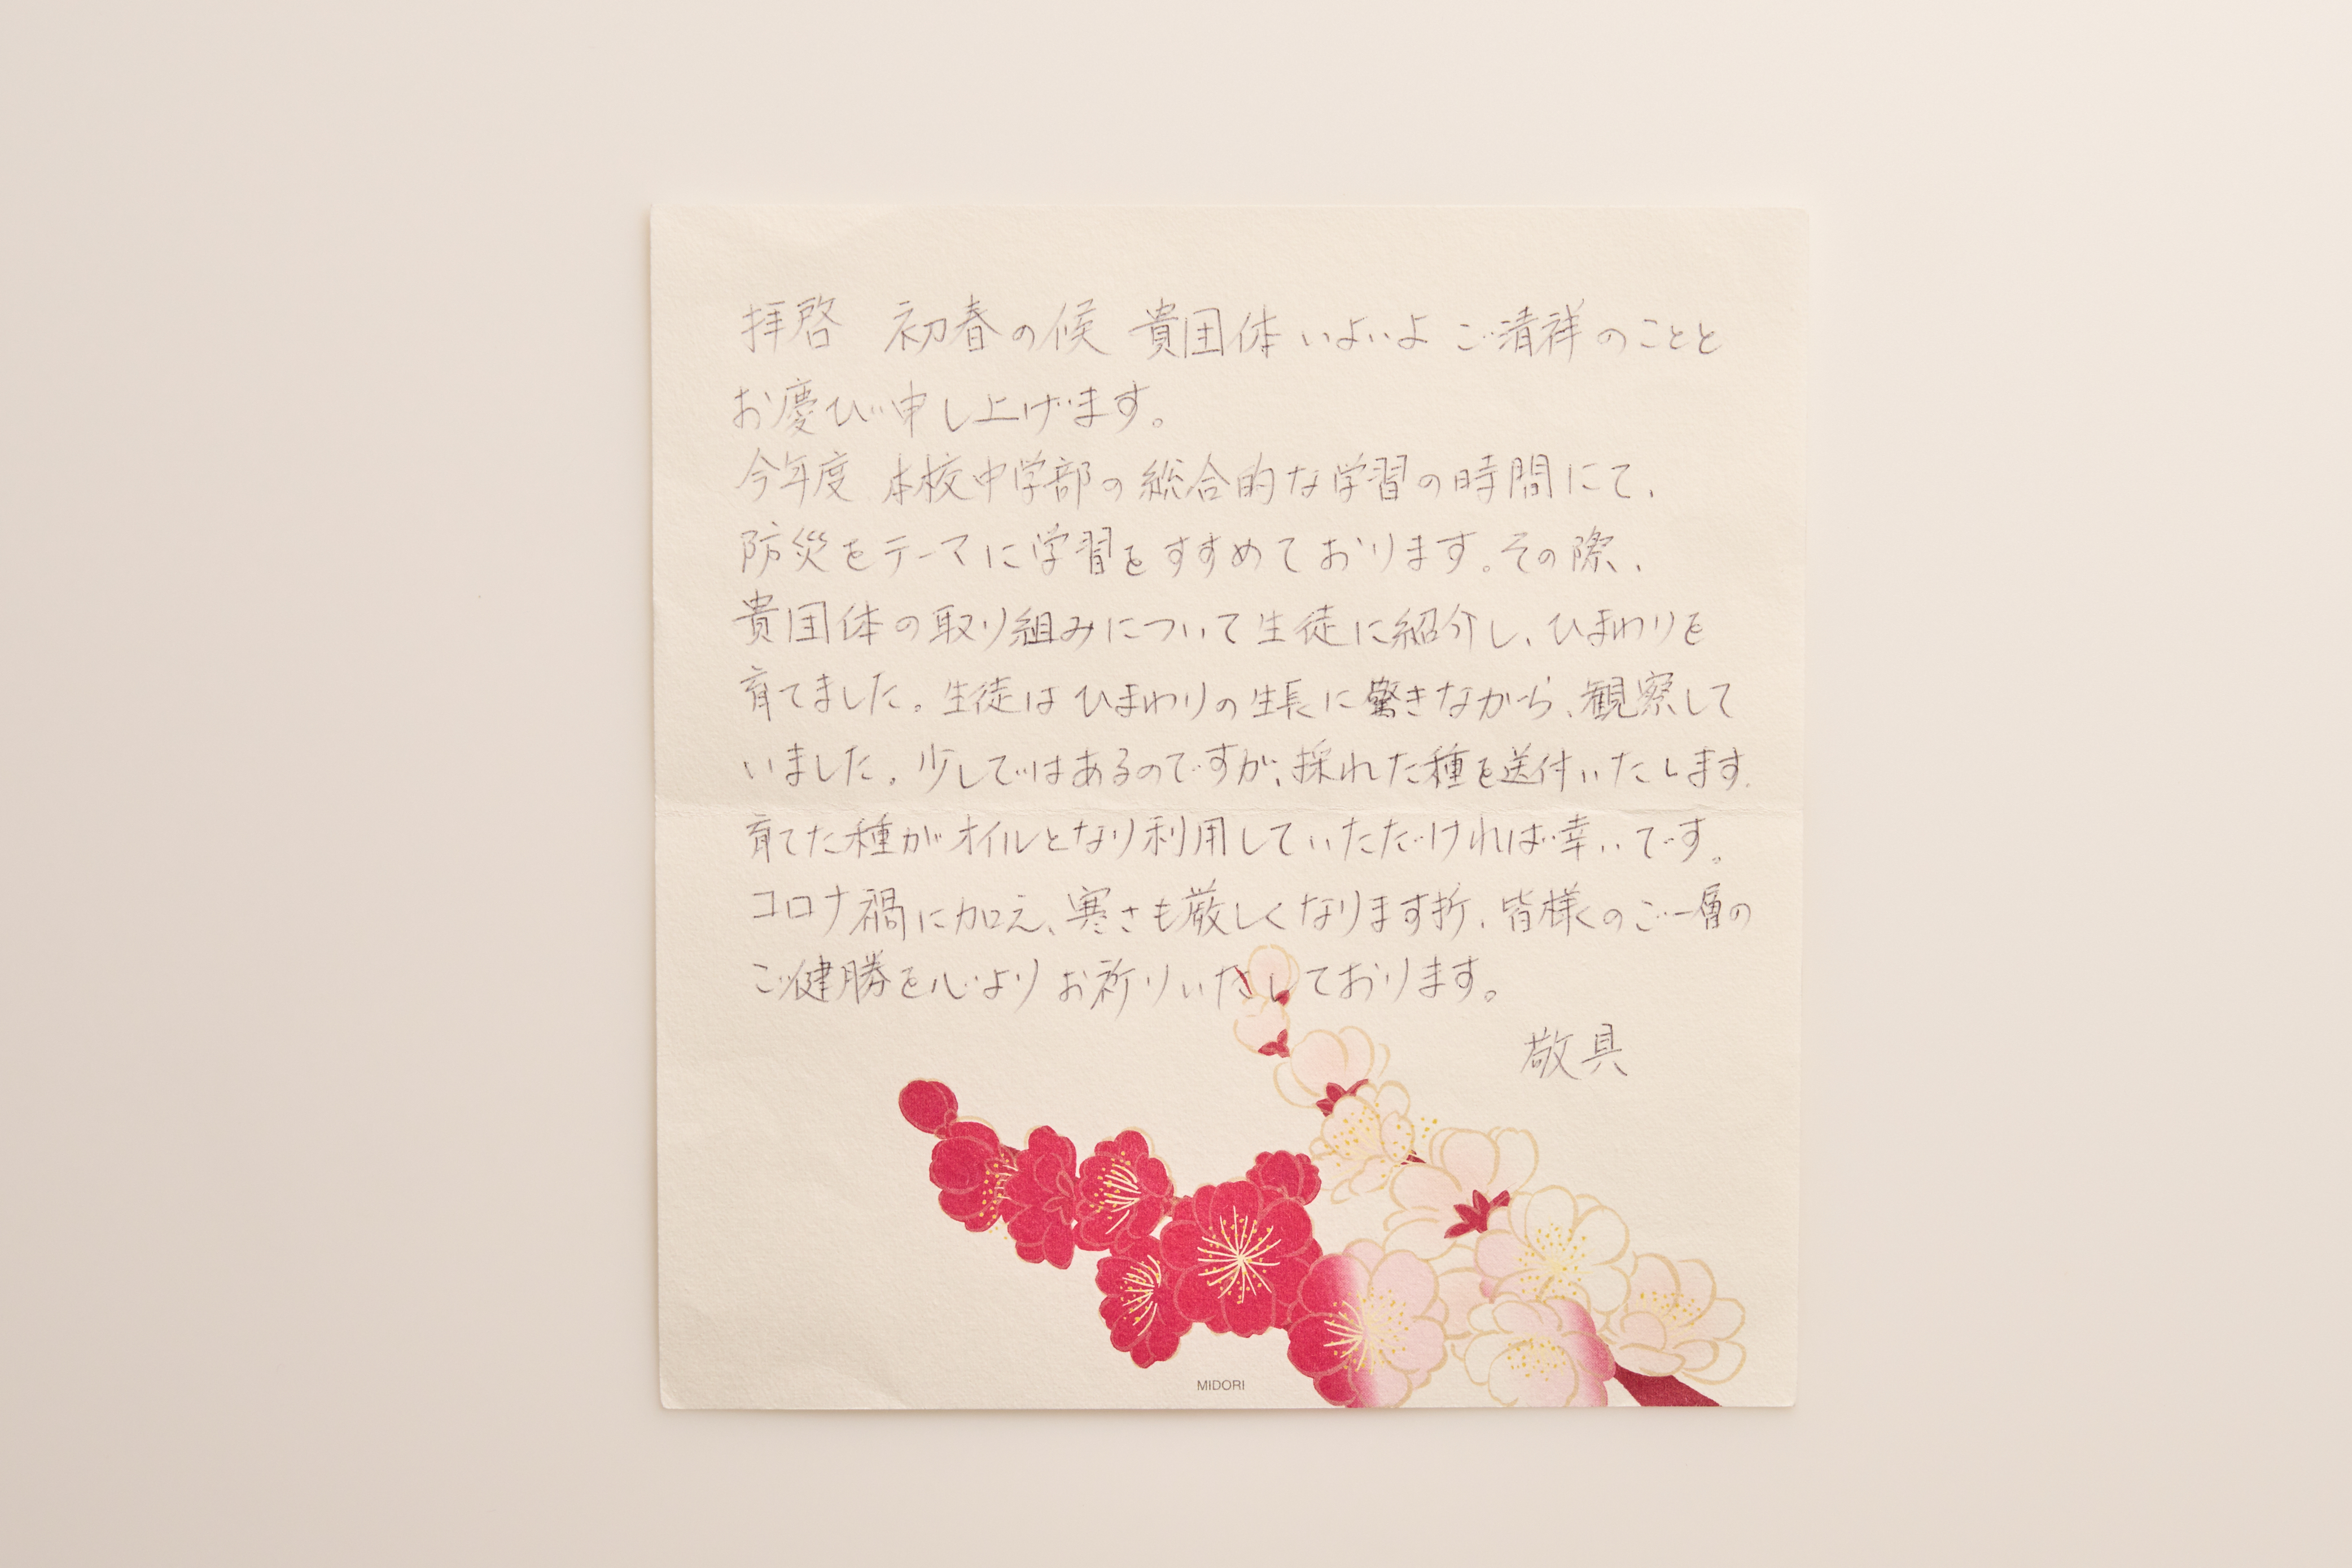 拝啓　初春の候 貴団体いよいよ ご清祥のことと
お慶び申し上げます。
今年度 本校中学部の総合的な学習の時間にて、
防災をテーマに学習をすすめております。その際、
貴団体の取り組みについて生徒に紹介し、ひまわりを
育てました。生徒は ひまわりの生長に驚きながら、観察して
いました。少しではあるのですが、採れた種を送付いたします。
育てた種がオイルとなり利用していただければ幸いです。
コロナ禍に加え、寒さも厳しくなります折、皆様のご一層の
ご健勝を心よりお祈りいたしております。
敬具
MIDORI